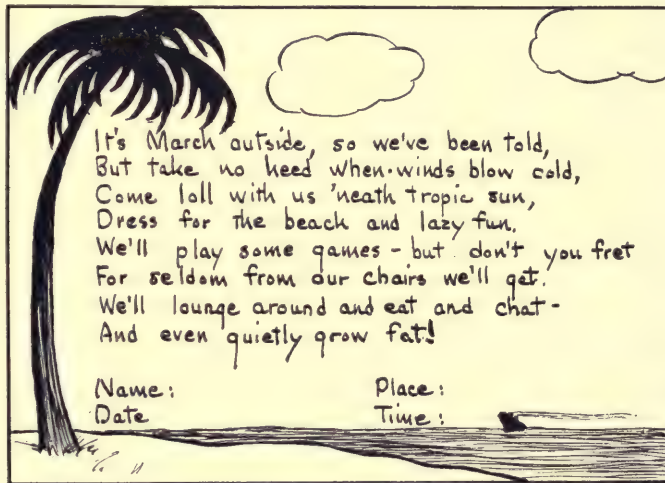 It's March outside, so we've been told,
But take no heed when winds blow cold,
Come loll with us 'neath tropic sun,
Dress for the beach and lazy fun.
We'll play some games - but don't you fret
For seldom from our chairs we'll get.
We'll lounge around and eat and chat -
And even quietly grow fat!
Name: Place:
Date Time: